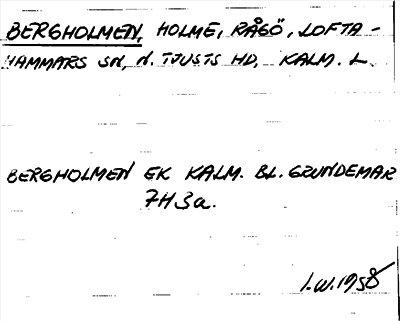 BERGHOLMEN, HOLME, RÅGÖ, LOFTA-
HAMMARS SN, N. TJUSTS HD, KALM. L.
BERGHOLMEN EK KALM. BL. GRUNDEMAR
7H3a.
I.W. 1958